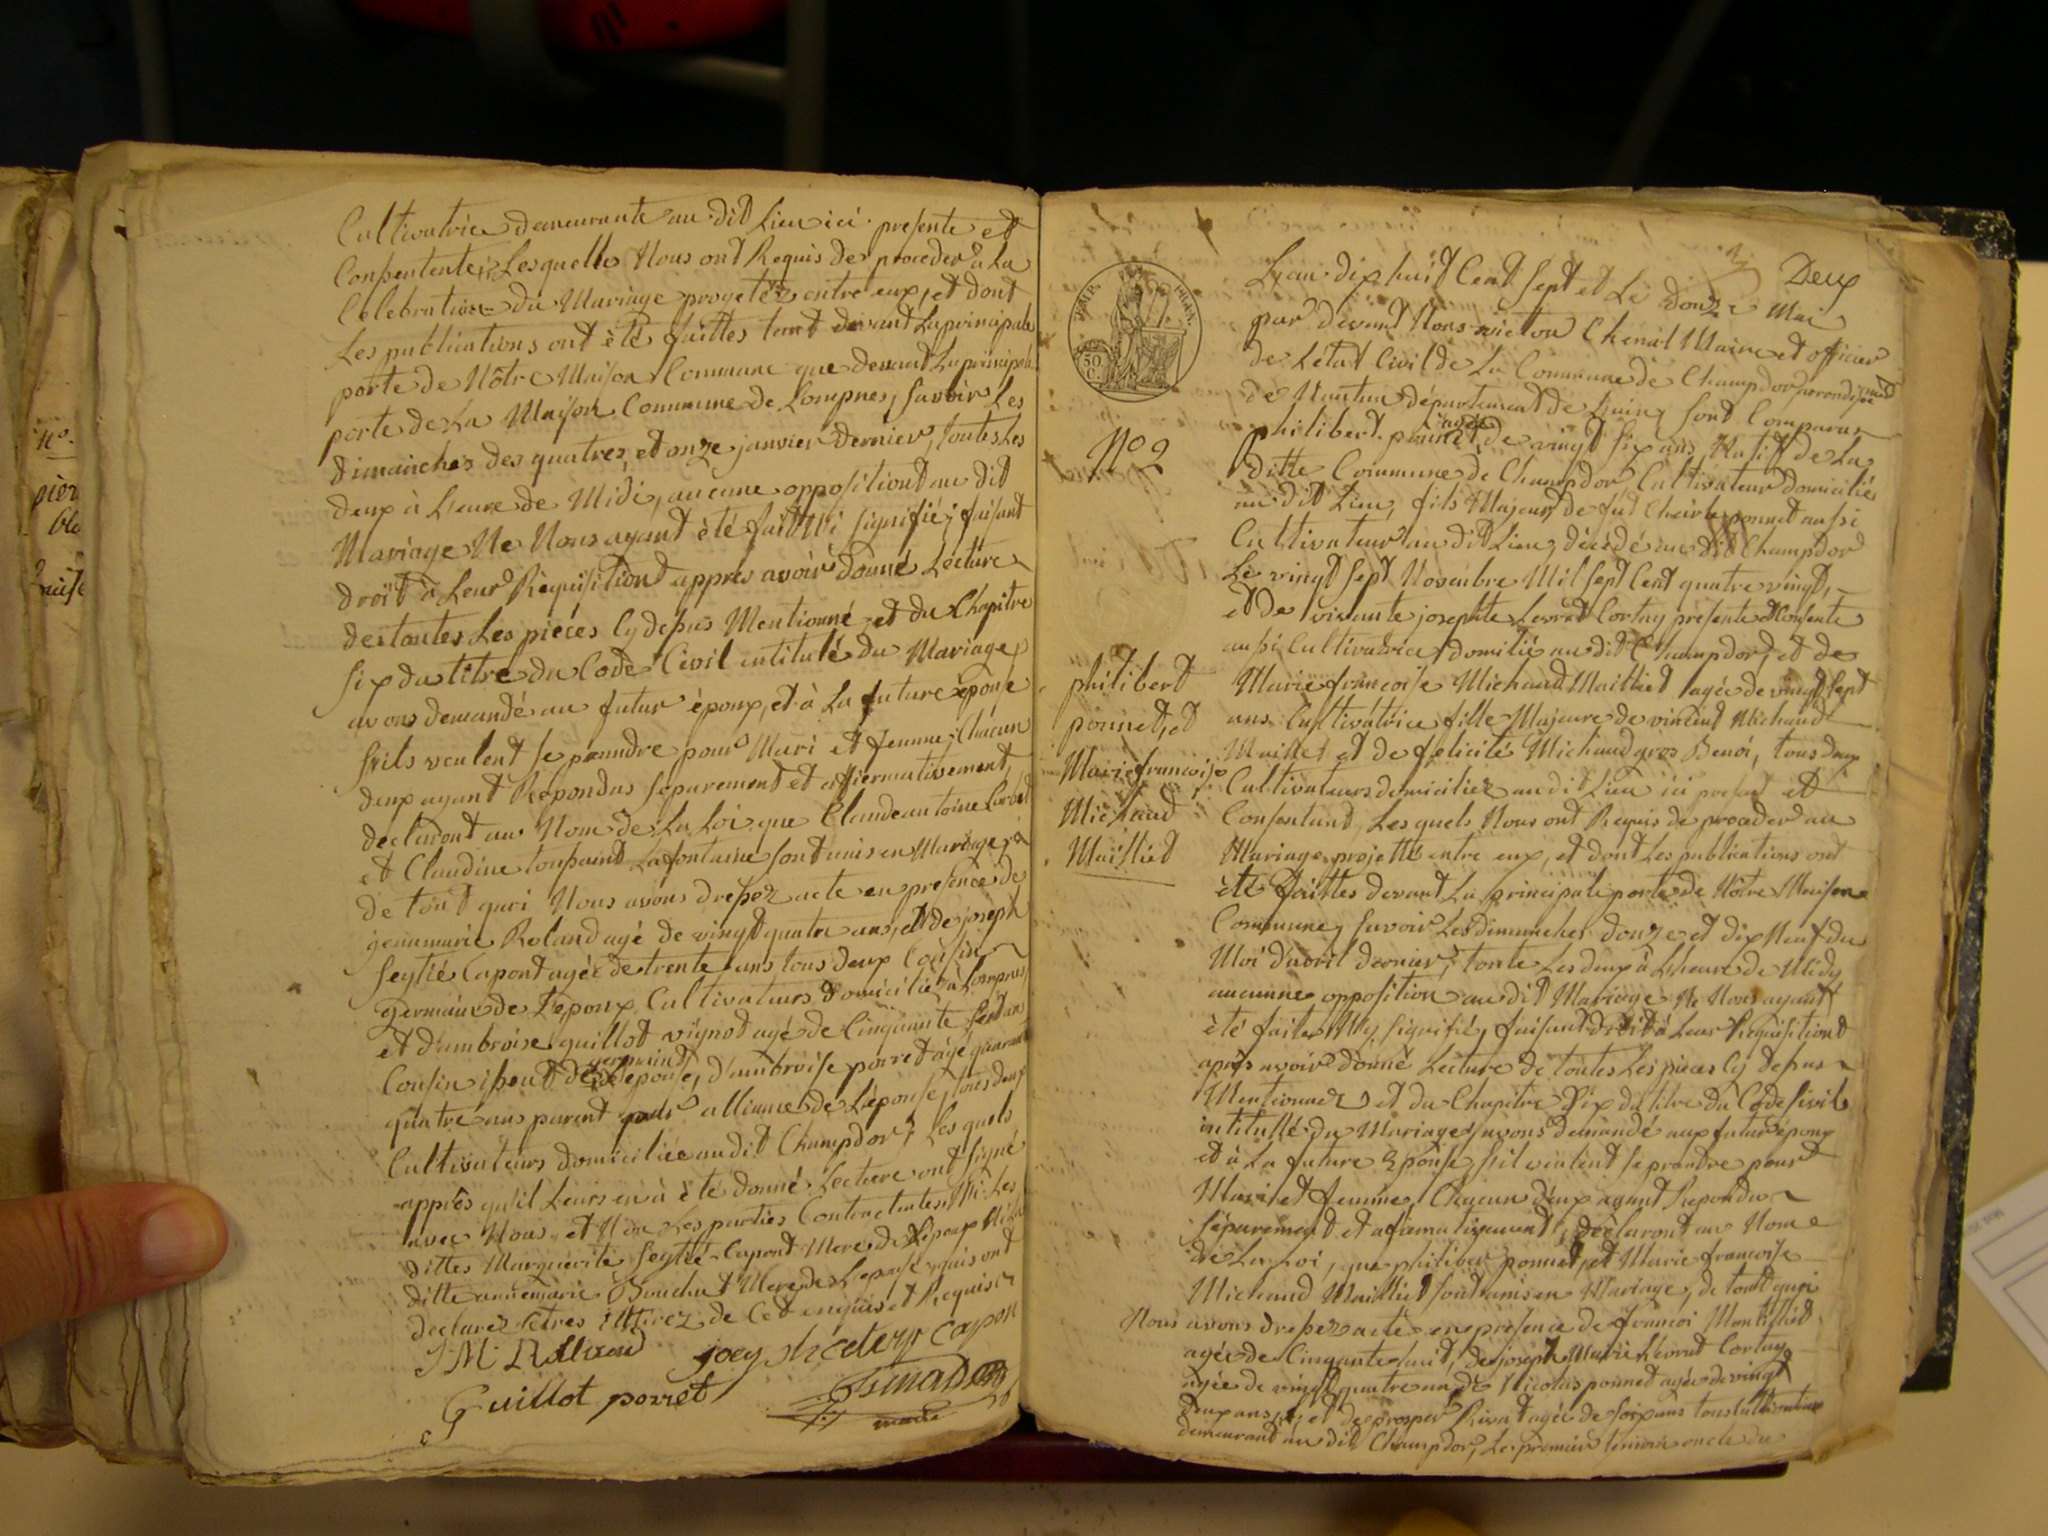 Cultivatrice demeurante au dit Lieu ici presente et
Consentente; Lesquelle Nous ont Requis de proceder a La
Celebration du Mariage progetéz entre eux, et dont
Les publications ont été faittes tant devant La principale
porte de Nôtre Maison Commune que devant La principale
porte de La Maison Commune de Lompnes, savoir Les
dimanches des quatres et onze janvier dernier, toutes Les
deux à Leure de Midi, aucune oppositiont au dit
Mariage Ne Nous ayant été fait Ni signifié; faisant
droit à Leur Requisitiont appres avoir donné Lecture
des toutes Les piéces Cy desus Mentionné et du Chapitre
six du titre du Code Civil intitulé du Mariage,
avons demandé au futur époux, et à La future épouse
s'ils veulent se prendre pour Mari et femme; Chacun
deux ayant Repondus separement et affiermativement,
declaront au Nom de La Loi que Claude antoine
et Claudine toussaint Lafontaine sont unis en Mariage;
de tout quoi Nous avons dressez acte en presence de
jeanmarie Roland agé de vingt quatre ans, et de joseph
Seytié Capont agée de trente ans tous deux Cousin
germain de L'epoux Cultivateurs domiciliéz à Lompnes,
et d'ambroise guillot vignot agé de Cinquante sept ans
Cousin isseut de germaind Lepouse, d'ambroise porret agé quarante
quatre ans parent par alliance de L'épouse, tous deux
Cultivateurs domiciliée au dit Champdor; Les quels
apprês qu'il Leurs en à été donné Lecture ont signé
avec Nous et Non Les parties Contractentes, Ni Les
dittes Marguerite Seytié Capont Mere de L'époux Ni La
ditte annemarie Bouchut Mere de Lepouse quis ont
declarez Letres illitirez de Cet enquis et Requis
J. M. Rolland joseph Capon
Guillot porret
maire
Deux
L'an dix huit Cent sept et Le douze Mai
par devant Nous victor Chenal Maire et officier
de Létat Civil de La Commune de Champdor
de Nantua département de L'ain, sont Comparus
N° 2
philibert ponnet agée de vingt six ans, Natif de La
ditte Commune de Champdor Cultivateur domiciliés
au dit Lieu, fils Majeur de fut Charle ponnet aussi
Cultivateur au dit Lieu, décédé au dit Champdor
Le vingt sept Novembre Mil sept Cent quatre vingt,
et de vivante josephte Levrat Cortay presente et Consente
aussi Cultivatrice domilié au dit Champdor, et de
Marie francoise Michaud Maillet agée de vingt sept
ans Cultivatrice fille Majeure de vincent Michaud
Maillet et de felicité Michaud gros Benoi, tous deux
Cultivateurs domiciliez au dit Lieu ici present et
Consentant, Les quels Nous ont Requis de proceder au
Mariage projetté entre eux, et dont Les publications ont
été faittes devant La principale porte de Nôtre Maison
Commune, savoir Les dimanches douze et dix Neuf du
Moi d'avril dernier, toute Les deux à Lheure de Midy
aucunne opposition au dit Mariage Ne Nous ayant
été faite Ny signifié, faisant droit à Leur Requisitiont
après avoir donné Lecture de toutes Les pieces Cy desus
Mentionnez et du Chapitre six du titre du Code sivil
intitullé du Mariage, avons demandé aux futur époux
et à La future Epouse, s'il veulent se prendre pour
Mari et femme Chacun deux ayant Repondu
séparement et afirmativement, déclaront au Nom
de La Loi, que philibert ponnet, et Marie francoise
Michaud Maillet sont unis en Mariage, de tout quoi
Nous avons dressez acte en présence de francoi Montillet
agée de Cinquante huit, de joseph Marie Levrat Cortay
agée de vingt quatre ans de Nicolas ponnet agée de vingt
deux ans, et de prosper Rivat agée de soix ans tous Cultivateur
demeurant au dit Champdor, Le premier temoin oncle du
philibert
ponnet, et
Marie francoise
Michaud
Maillet